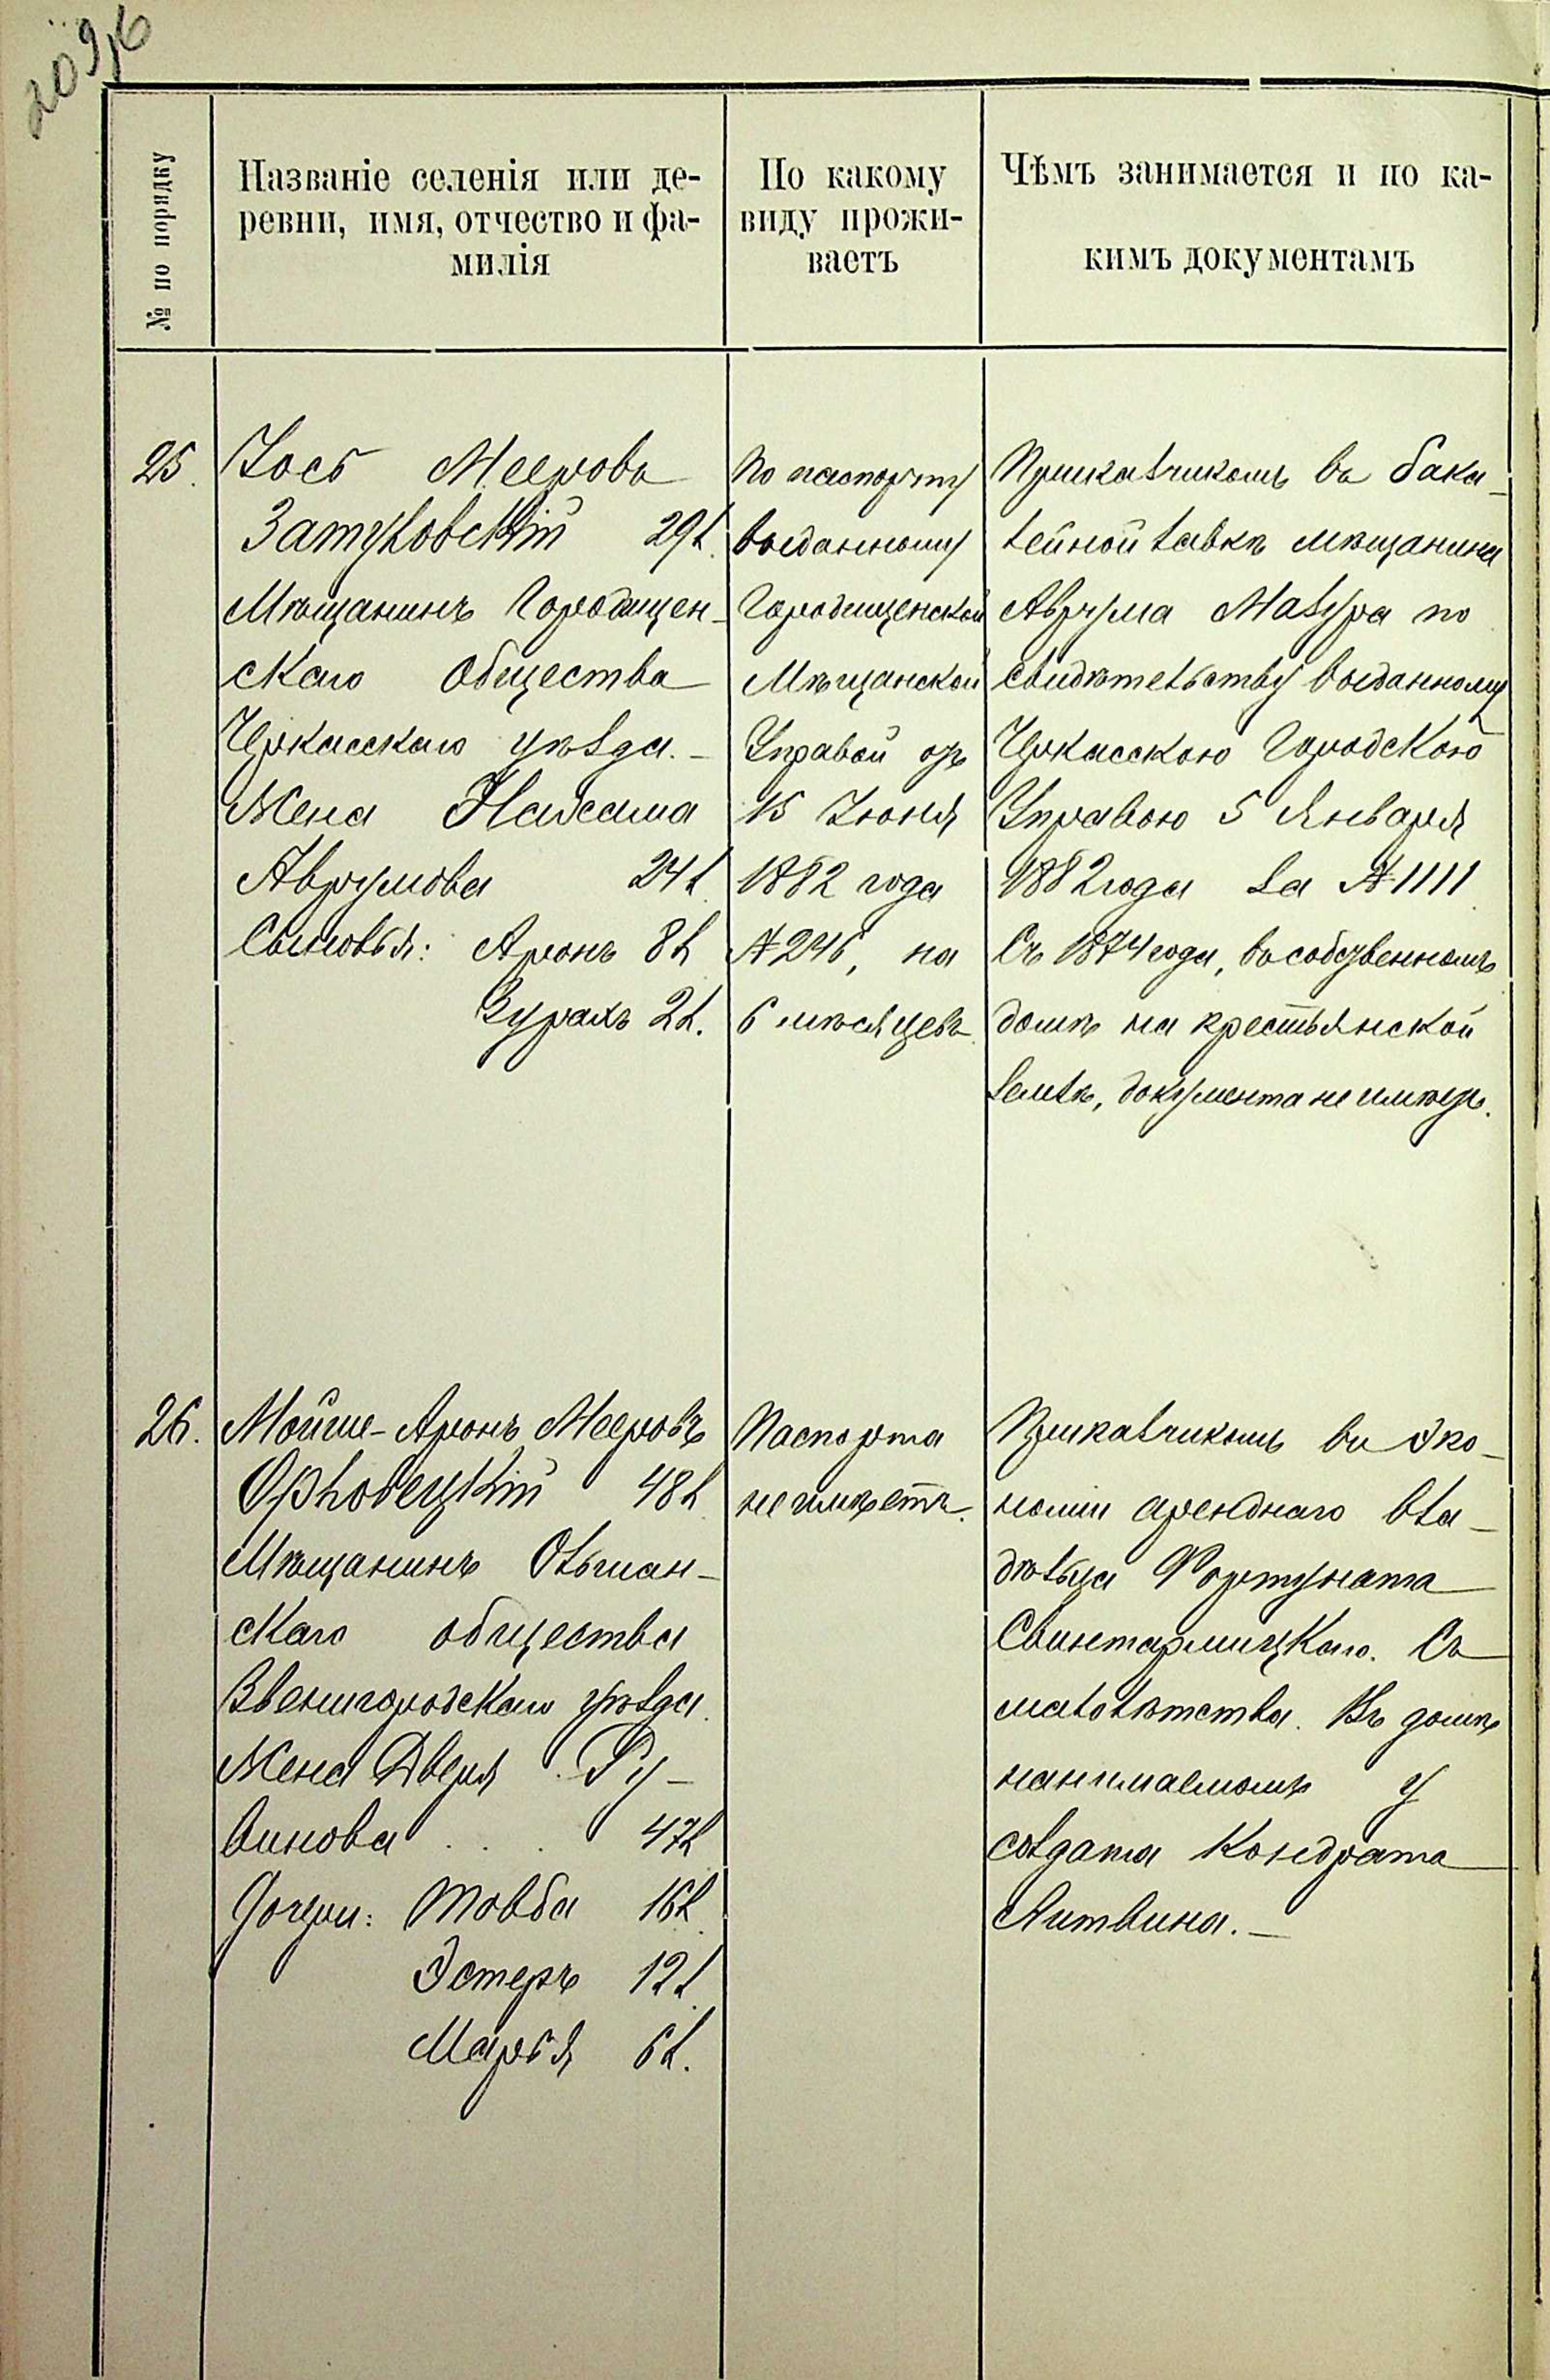 209
№ по порядку
Названіе селенія или де-
ревни, имя, отчество и фа-
милія
По какому
виду прожи-
ваетъ
Чѣмъ занимается и по ка-
кимъ документамъ
25.
Іось Мееровъ
Затуловскій 29 л.
Мѣщанинъ Городищен-
скаго Общества
Черкасскаго уѣзда. –
Жена
Аврумова 24 л
Сыновья: Аронъ 8 л
Зурахъ 2 л.
По паспорту
выданному
Городищенской
Мѣщанской
Управой отъ
15 Іюня
1882 года
№ 246, на
6 мѣсяцевъ
Прикащикомъ въ бака-
лейной лавкѣ мѣщанина
Аврума Мазура по
свидѣтельству выданному
Черкасскою Городскою
Управою 5 Января
1882 года за № 1111
Съ 1874 года, въ собственномъ
домѣ на крестьянской
землѣ, документа не имѣетъ.
26.
Мойше-Аронъ Мееровъ
48 л
Мѣщанинъ Ольшан-
скаго общества
Звенигородскаго уѣзда.
Жена Двейя Ру-
винова . . . 47 л
Дочери: Товба 16 л
Эстеръ 12 л
Марья 6 л.
Паспорта
не имѣетъ.
Прикащикомъ въ эко-
номіи аренднаго вла-
дѣльца Фортуната
Съ
малолѣтства. Въ домѣ
нанимаемомъ у
солдата Кондрата
Литвина. –